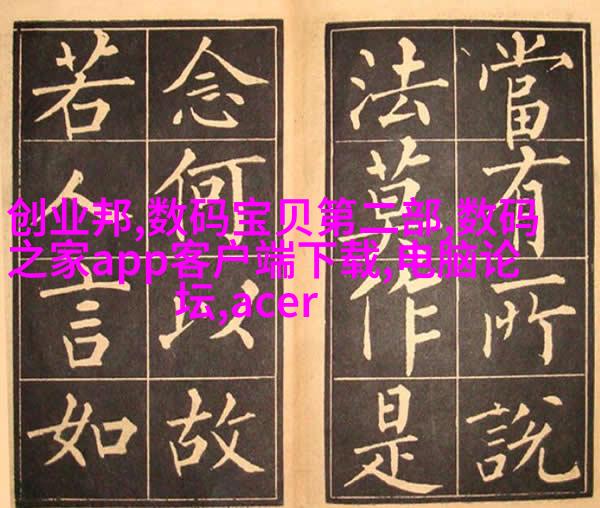 當有所說
法莫作是
念何以故
若人言如
创业邦,数码宝贝第二部,数码
之家app客户端下载,电脑论
坛,acer